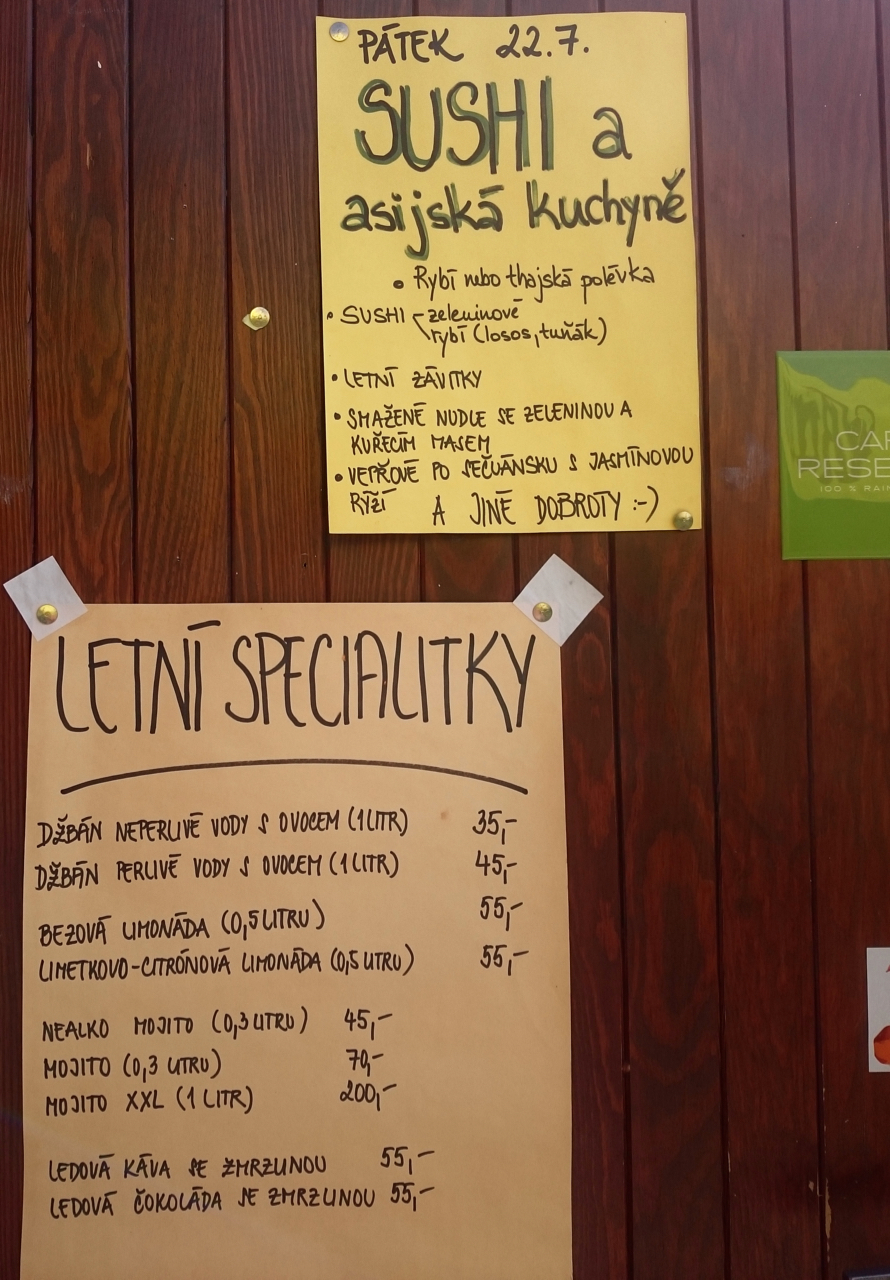 PÁTEK 22.7.
SUSHI a
asijská kuchyně
• Rybí nebo thajská polévka
• SUSHI - zeleninové
rybí (losos, tuňák)
• LETNÍ ZÁVITKY
• SMAŽENÉ NUDLE SE ZELENINOU A
KUŘECÍM MASEM
• VEPŘOVÉ PO SEČUÁNSKU S JASMÍNOVOU
RÝŽÍ
A JINÉ DOBROTY :-)
CAF
RESE
100 % RAIN
LETNÍ SPECIALITKY
DŽBÁN NEPERLIVÉ VODY S OVOCEM (1 LITR) 35,-
DŽBÁN PERLIVÉ VODY S OVOCEM (1 LITR) 45,-
BEZOVÁ LIMONÁDA (0,5 LITRU) 55,-
LIMETKOVO-CITRÓNOVÁ LIMONÁDA (0,5 LITRU) 55,-
NEALKO MOJITO (0,3 LITRU) 45,-
MOJITO (0,3 LITRU) 70,-
MOJITO XXL (1 LITR) 200,-
LEDOVÁ KÁVA SE ZMRZLINOU 55,-
LEDOVÁ ČOKOLÁDA SE ZMRZLINOU 55,-